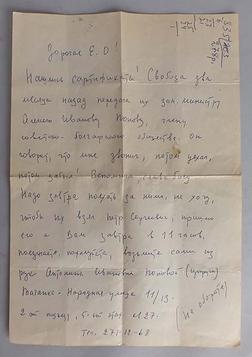 Дорогая Е. О!
Нашлись сертификаты! Свобода два
месяца назад передала их зам. министру
Алексею Ивановичу Попову, члену
советско-болгарского общества. Он
говорит, что мне звонил, потом уехал,
потом забыл! Вспомнил, слава богу
Надо завтра поехать за ними, не хочу,
чтобы их взял Петр Сергеевич, пришлю
его к Вам завтра в 11 часов,
поезжайте, получите, возьмите сами из
рук Антонины Ивановны Поповой
Ватанке - Народная улица 11/13.
2-ой подъезд, 5-ый этаж кв 27.
Тел. 271-12-68
(на обороте)